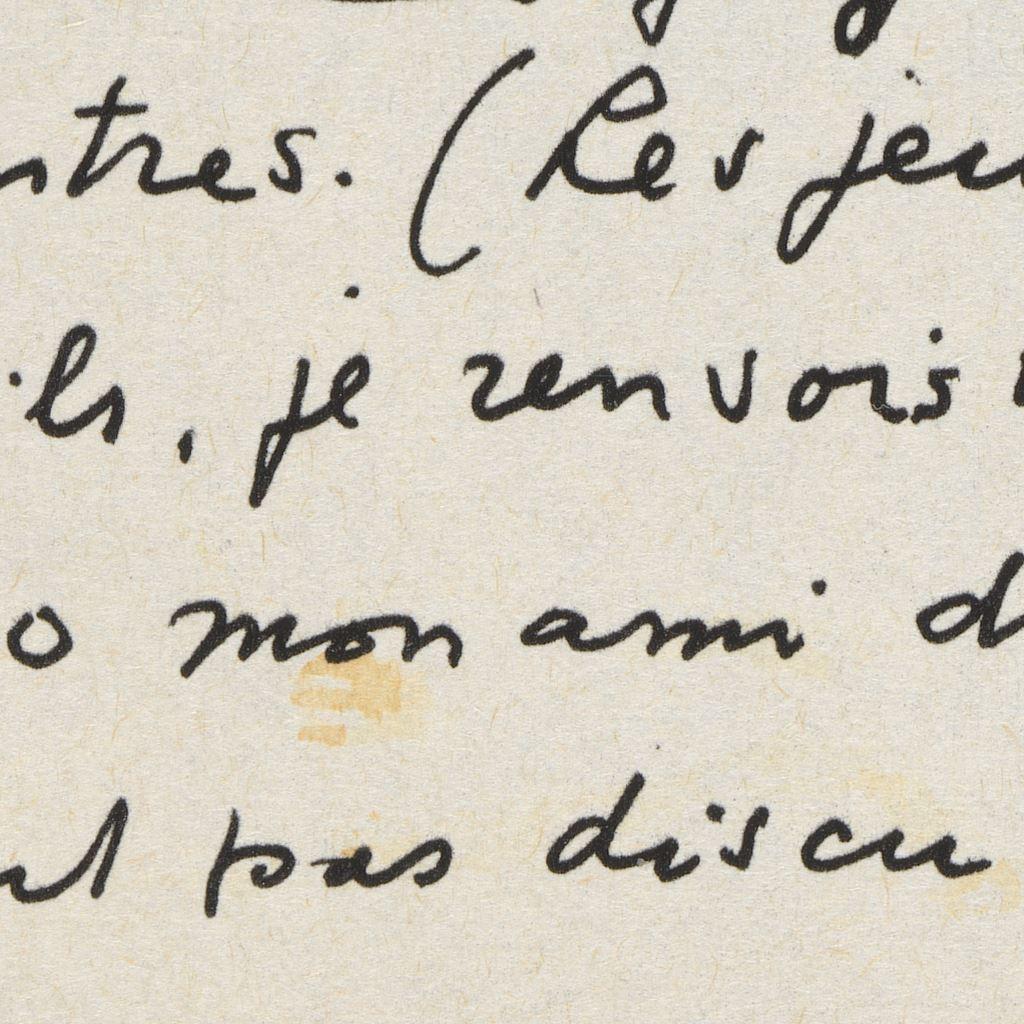 ntres. (Les jeu
ils, je renvois
o mon ami d
pas discu